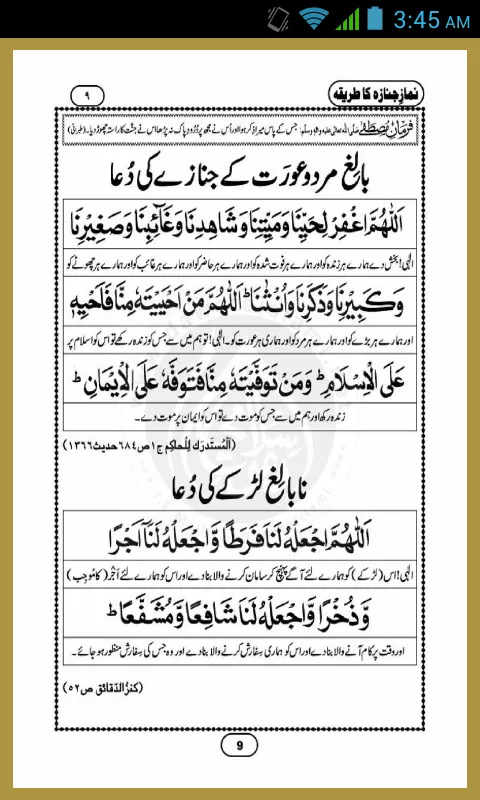 3:45 AM
نمازِ جنازہ کا طریقہ
۹
فرمانِ مصطفٰے صلی اللہ تعالیٰ علیہ والہ وسلم: جس کے پاس میرا ذکر ہوا اور اُس نے مجھ پر دُرُودِ پاک نہ پڑھا اس نے جنّت کا راستہ چھوڑ دیا۔ (طبرانی)
بالِغ مرد و عورَت کے جنازے کی دُعا
اَللّٰهُمَّ اغْفِرْ لِحَيِّنَا وَمَيِّتِنَا وَشَاهِدِنَا وَغَآئِبِنَا وَصَغِيْرِنَا
الٰہی! بخش دے ہمارے ہر زندہ کو اور ہمارے ہر فوت شدہ کو اور ہمارے ہر حاضر کو اور ہمارے ہر غائب کو اور ہمارے ہر چھوٹے کو
وَكَبِيْرِنَا وَذَكَرِنَا وَاُنْثٰنَا ؕ اَللّٰهُمَّ مَنْ اَحْيَيْتَهٗ مِنَّا فَاَحْيِهٖ
اور ہمارے ہر بڑے کو اور ہمارے ہر مرد کو اور ہماری ہر عورت کو۔ الٰہی! تو ہم میں سے جس کو زندہ رکھے تو اس کو اسلام پر
عَلَى الْاِسْلَامِ ؕ وَمَنْ تَوَفَّيْتَهٗ مِنَّا فَتَوَفَّهٗ عَلَى الْاِيْمَانِ ؕ
زندہ رکھ اور ہم میں سے جس کو موت دے تو اس کو ایمان پر موت دے۔
(اَلْمُستَدرَك لِلْحاكِم ج۱ ص۶۸۴ حدیث۱۳۶۶)
نابالِغ لڑکے کی دُعا
اَللّٰهُمَّ اجْعَلْهُ لَنَا فَرَطًا وَّاجْعَلْهُ لَنَآ اَجْرًا
الٰہی! اس (لڑکے) کو ہمارے لئے آگے پہنچ کر سامان کرنے والا بنا دے اور اس کو ہمارے لئے اَجْر (کا مُوجِب)
وَّذُخْرًا وَّاجْعَلْهُ لَنَا شَافِعًا وَّمُشَفَّعًا ؕ
اور وقت پر کام آنے والا بنا دے اور اس کو ہماری سِفارش کرنے والا بنا دے اور وہ جس کی سِفارش منظور ہو جائے۔
(کنزُ الدّقائق ص۵۲)
9